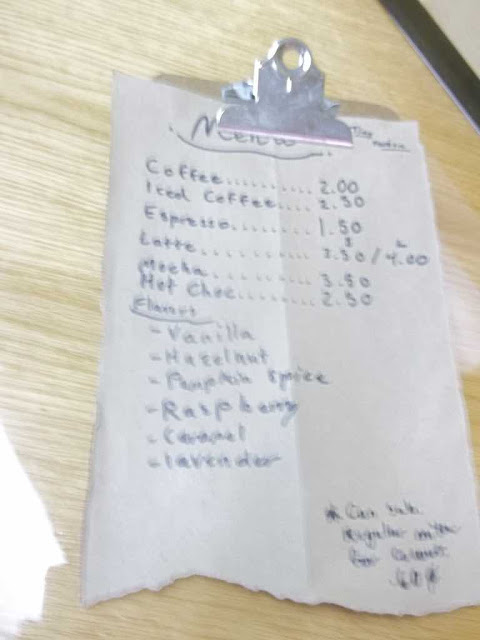 Menu
Coffee.......... 2.00
Iced Coffee.... 2.50
Espresso....... 1.50
Latte.......... 3.50 / 4.00
Mocha.......... 3.50
Hot Choc....... 2.50
- Vanilla
- Hazelnut
- Pumpkin Spice
- Raspberry
- Caramel
- lavender
* Can
Regular
for